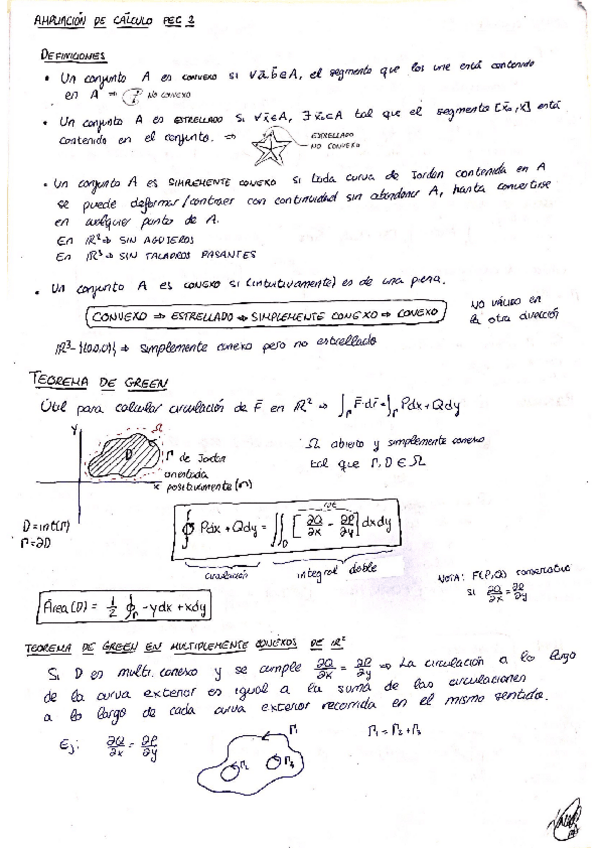 AMPLIACIÓN DE CÁLCULO PEC 2
DEFINICIONES
• Un conjunto A es CONVEXO si ∀ā,b̄∈A, el segmento que los une está contenido
en A ⇒ NO CONVEXO
• Un conjunto A es ESTRELLADO si ∀x̄∈A, ∃x̄₀∈A tal que el segmento [x̄₀,x̄] está
contenido en el conjunto. ⇒ ESTRELLADO
NO CONVEXO
• Un conjunto A es SIMPLEMENTE CONEXO si toda curva de Jordan contenida en A
se puede deformar/contraer con continuidad sin abandonar A, hasta convertirse
en cualquier punto de A.
En ℝ² ⇒ SIN AGUJEROS
En ℝ³ ⇒ SIN TALADROS PASANTES
• Un conjunto A es CONEXO si (intuitivamente) es de una pieza.
CONVEXO ⇒ ESTRELLADO ⇒ SIMPLEMENTE CONEXO ⇒ CONEXO
NO VÁLIDO en
la otra dirección
ℝ³-{(0,0,0)} ⇒ simplemente conexo pero no estrellado
TEOREMA DE GREEN
Útil para calcular circulación de F̄ en ℝ² ⇒ ∫_Γ F̄·dr̄ = ∫_Γ Pdx+Qdy
Y
Ω
D
Γ de Jordan
orientada
x positivamente
Ω abierto y simplemente conexo
tal que Γ, D ∈ Ω
D = int(Γ)
Γ = ∂D
rot
∮_Γ Pdx + Qdy = ∬_D [∂Q/∂x - ∂P/∂y] dxdy
circulación
integral doble
NOTA: F(P,Q) conservativo
si ∂Q/∂x = ∂P/∂y
Área (D) = 1/2 ∮_Γ -ydx + xdy
TEOREMA DE GREEN EN MULTIPLEMENTE CONEXOS DE ℝ²
Si D es multi. conexo y se cumple ∂Q/∂x = ∂P/∂y ⇒ La circulación a lo largo
de la curva exterior es igual a la suma de las circulaciones
a lo largo de cada curva exterior recorrida en el mismo sentido.
Ej: ∂Q/∂x = ∂P/∂y
Γ₁
Γ₂
Γ₃
Γ₁ = Γ₂ + Γ₃